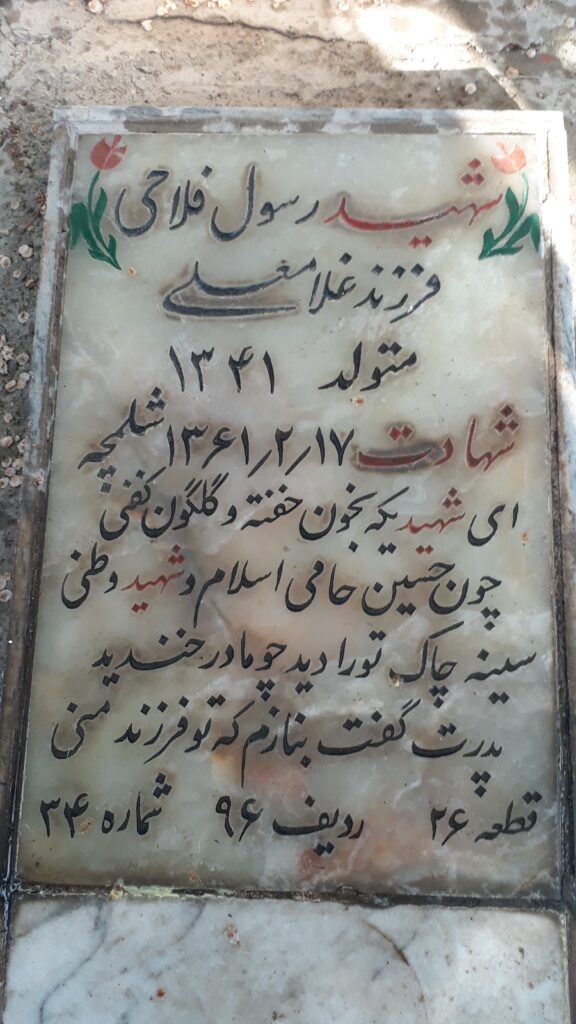 شهید رسول فلاحی
فرزند غلامعلی
متولد ۱۳۴۱
شهادت ۱۳۶۱/۲/۱۷ شلمچه
ای شهیدیکه بخون خفته و گلگون کفنی
چون حسین حامی اسلام و شهید وطنی
سینه چاک تورا دید چو مادر خندید
پدرت گفت بنازم که تو فرزند منی
قطعه ۲۶ ردیف ۹۶ شماره ۳۴